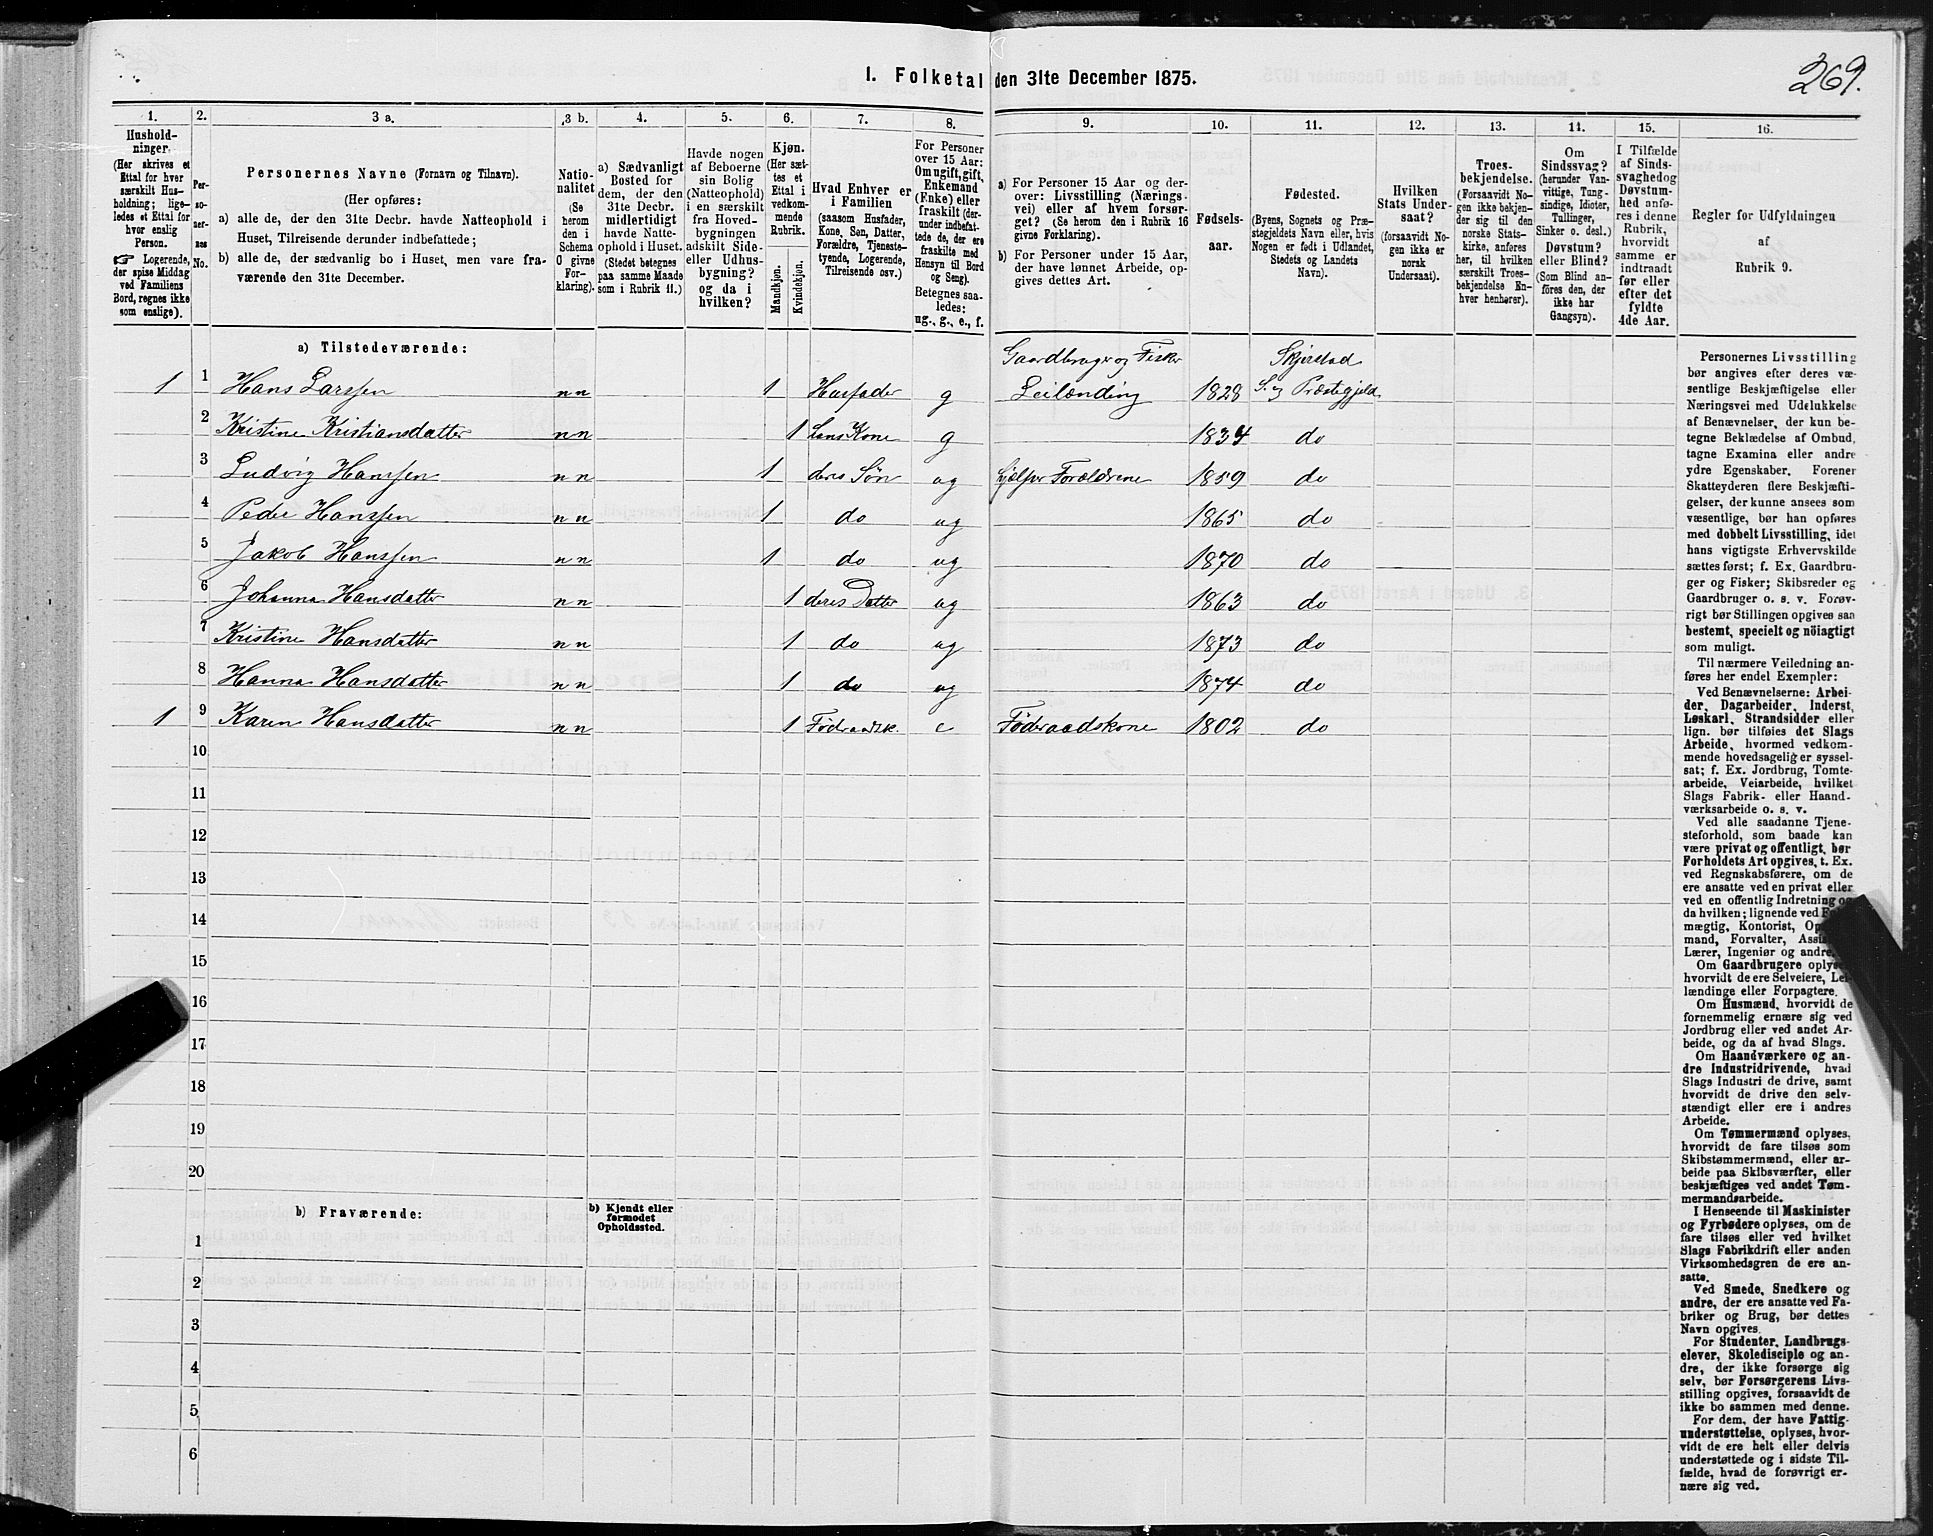 269.
1. Folketal den 31te December 1875.
1. 2. 3 a. 3 b. 4. 5. 6. 7. 8. 9. 10. 11. 12. 13. 14. 15. 16.
Hushold-
ninger.
(Her skrives et
Ettal for hver
særskilt Hus-
holdning; lige-
ledes et Ettal for
hver enslig
Person.
☞ Logerende,
der spise Middag
ved Familiens
Bord, regnes ikke
som enslige).
Per-
so-
ner-
nes
No.
Personernes Navne (Fornavn og Tilnavn).
(Her opføres:
a) alle de, der den 31te Decbr. havde Natteophold i
Huset, Tilreisende derunder indbefattede;
b) alle de, der sædvanlig bo i Huset, men vare fra-
værende den 31te December.
Natio-
nalitet
(Se
herom
den i
Schema
O givne
For-
klaring).
a) Sædvanligt
Bosted for
dem, der den
31te Decbr.
midlertidigt
havde Natte-
ophold i Huset.
(Stedet betegnes
paa samme Maade
som i Rubrik 11.)
Havde nogen
af Beboerne
sin Bolig
(Natteophold)
i en særskilt
fra Hoved-
bygningen
adskilt Side-
eller Udhus-
bygning?
og da i
hvilken?
Kjøn.
(Her sæt-
tes et
Ettal i
vedkom-
mende
Rubrik.
Mandkjøn.
Kvindekjøn.
Hvad Enhver er
i Familien
(saasom Husfader,
Kone, Søn, Datter,
Forældre, Tjeneste-
tyende, Logerende,
Tilreisende osv.)
For Personer
over 15 Aar:
Om ugift, gift,
Enkemand
(Enke) eller
fraskilt (der-
under indbefat-
tede de, der ere
fraskilte med
Hensyn til Bord
og Seng).
Betegnes saa-
ledes:
ug., g., e., f.
a) For Personer 15 Aar og der-
over: Livsstilling (Nærings-
vei) eller af hvem forsør-
get? (Se herom den i Rubrik 16
givne Forklaring).
b) For Personer under 15 Aar,
der have lønnet Arbeide, op-
gives dettes Art.
Fødsels-
aar.
Fødested.
(Byens, Sognets og Præ-
stegjeldets Navn eller, hvis
Nogen er født i Udlandet,
Stedets og Landets
Navn).
Hvilken
Stats Under-
saat?
(forsaavidt No-
gen ikke er
norsk
Undersaat).
Troes-
bekjendelse.
(Forsaavidt No-
gen ikke bekjen-
der sig til den
norske Stats-
kirke, anføres
her, til hvilken
særskilt Troes-
bekjendelse En-
hver henhører).
Om
Sindssvag?
(herunder Van-
vittige, Tung-
sindige, Idioter,
Tullinger,
Sinker o. desl.)
Døvstum?
eller Blind?
(Som Blind an-
føres den, der
ikke har
Gangsyn).
I Tilfælde
af Sinds-
svaghed og
Døvstum-
hed anfø-
res i denne
Rubrik,
hvorvidt
samme er
indtraadt
før eller
efter det
fyldte
4de Aar.
Regler for Udfyldningen
af
Rubrik 9.
a) Tilstedeværende:
Gaardbruger og Fisker Skjerstad
1 1 Hans Larssen nn 1 Husfader g Leilænding 1828 S. og Præstegjeld
2 Kristine Kristiansdatter nn 1 hans Kone g 1834 do
3 Ludvig Hanssen nn 1 deres Søn ug hjælper Forældrene 1859 do
4 Peder Hanssen nn 1 do ug 1865 do
5 Jakob Hanssen nn 1 do ug 1870 do
6 Johanna Hansdatter nn 1 deres Datter ug 1863 do
7 Kristine Hansdatter nn 1 do ug 1873 do
8 Hanna Hansdatter nn 1 do ug 1874 do
1 9 Karen Hansdatter nn 1 Føderaadsk. e Føderaadskone 1802 do
10
11
12
13
14
15
16
17
18
19
20
b) Fraværende:
b) Kjendt eller
formodet
Opholdssted.
1
2
3
4
5
6
Personernes Livsstilling
bør angives efter deres væ-
sentlige Beskjæftigelse eller
Næringsvei med Udelukkelse
af Benævnelser, der kun be-
tegne Beklædelse af Ombud,
tagne Examina eller andre
ydre Egenskaber. Forener
Skatteyderen flere Beskjæfti-
gelser, der kunne ansees som
væsentlige, bør han opføres
med dobbelt Livsstilling, idet
hans vigtigste Erhvervskilde
sættes først; f. Ex. Gaardbru-
ger og Fisker; Skibsreder og
Gaardbruger o. s. v. Forøv-
rigt bør Stillingen opgives saa
bestemt, specielt og nöiagtigt
som muligt.
Til nærmere Veiledning an-
føres her endel Exempler:
Ved Benævnelserne: Arbei-
der, Dagarbeider, Inderst,
Løskarl, Strandsidder eller
lign. bør tilføies det Slags
Arbeide, hvormed vedkom-
mende hovedsagelig er syssel-
sat; f. Ex. Jordbrug, Tomte-
arbeide, Veiarbeide, hvilket
Slags Fabrik- eller Haand-
værksarbeide o. s. v.
Ved alle saadanne Tjene-
steforhold, som baade kan
være privat og offentligt, bør
Forholdets Art opgives, t. Ex.
ved Regnskabsførere, om de
ere ansatte ved en privat eller
ved en offentlig Indretning og
da hvilken; lignende ved
mægtig, Kontorist,
mand, Forvalter,
Lærer, Ingeniør og andre.
Om Gaardbrugere
hvorvidt de ere Selveiere, Lei-
lændinge eller Forpagtere.
Om Husmænd, hvorvidt de
fornemmelig ernære sig ved
Jordbrug eller ved andet Ar-
beide, og da af hvad Slags.
Om Haandværkere og an-
dre Industridrivende, hvad
Slags Industri de drive, samt
hvorvidt de drive den selv-
stændigt eller ere i andres
Arbeide.
Om Tømmermænd oplyses,
hvorvidt de fare tilsøs som
Skibstømmermænd, eller ar-
beide paa Skibsværfter, eller
beskjæftiges ved andet Tøm-
mermandsarbeide.
I Henseende til Maskinister
og Fyrbødere oplyses, om de
fare tilsøs eller ved hvilket
Slags Fabrikdrift eller anden
Virksomhedsgren de ere an-
satte.
Ved Smede, Snedkere og
andre, der ere ansatte ved Fa-
briker og Brug, bør dettes
Navn opgives.
For Studenter, Landbrugs-
elever, Skoledisciple og an-
dre, der ikke forsørge sig
selv, bør Forsørgerens Livs-
stilling opgives, forsaavidt de
ikke bo sammen med denne.
For dem, der have Fattig-
understøttelse, oplyses, hvor-
vidt de ere helt eller delvis
understøttede og i sidste Til-
fælde, hvad de forøvrigt er-
nære sig ved.